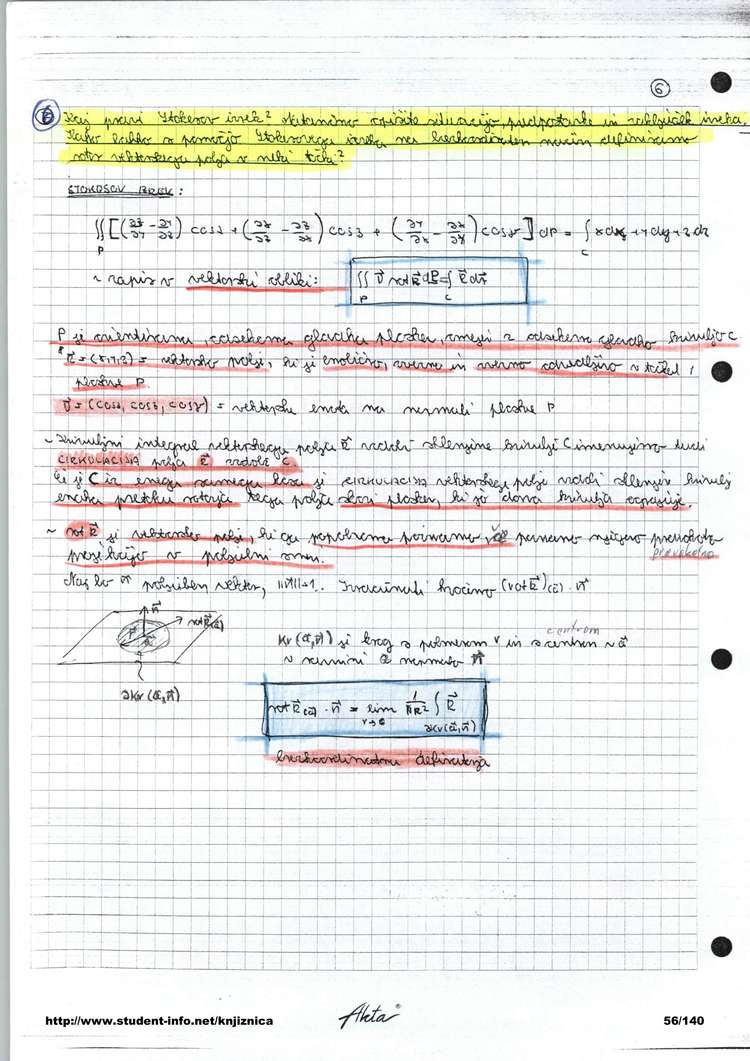 6
6 Kaj pravi Stokesov izrek? Natančno opišite situacijo, predpostavke in zaključek izreka.
Kako lahko s pomočjo Stokesovega izreka na brezkoordinaten način definiramo
rotor vektorskega polja v neki točki?
STOKESOV IZREK:
∬_P [(∂Z/∂Y - ∂Y/∂Z) cosα + (∂X/∂Z - ∂Z/∂X) cosβ + (∂Y/∂X - ∂X/∂Y) cosγ] dP = ∫_C Xdx + Ydy + Zdz
~ zapis v vektorski obliki: ∬_P ν⃗ rot R⃗ dP = ∫_C R⃗ dr⃗
P je orientirana, odsekoma gladka ploskev, omejena z odsekoma gladko krivuljo C
* R⃗ = (X,Y,Z) = vektorsko polje, ki je enolično, zvezno in zvezno odvedljivo v točkah
ploskve P.
ν⃗ = (cosα, cosβ, cosγ) = vektorska enota na normali ploskve P
~ Krivuljni integral vektorskega polja R⃗ vzdolž sklenjene krivulje C imenujemo tudi
CIRKULACIJA polja R⃗ vzdolž C
Če je C iz enega samega kosa je CIRKULACIJA vektorskega polja vzdolž sklenjene krivulje
enaka pretoku rotorja tega polja skozi ploskev, ki jo dana krivulja ograjuje.
~ rot R⃗ je vektorsko polje, ki ga popolnoma poznamo, če poznamo njegovo pravokotno
projekcijo v poljubni smeri. pravokotno
Naj bo n⃗ poljuben vektor, ||n⃗||=1. Izračunati hočemo (rot R⃗)(a⃗) · n⃗
n⃗
rot R⃗(a⃗)
∂Kr(a⃗,n⃗)
centrom
Kr(a⃗,n⃗) je krog s polmerom r in s centrom v a⃗
v ravnini z normalo n⃗
rot R⃗(a⃗) · n⃗ = lim_{r→0} 1/(πR²) ∫_{∂Kr(a⃗,n⃗)} R⃗
brezkoordinatna definicija
http://www.student-info.net/knjiznica
Akta
56/140